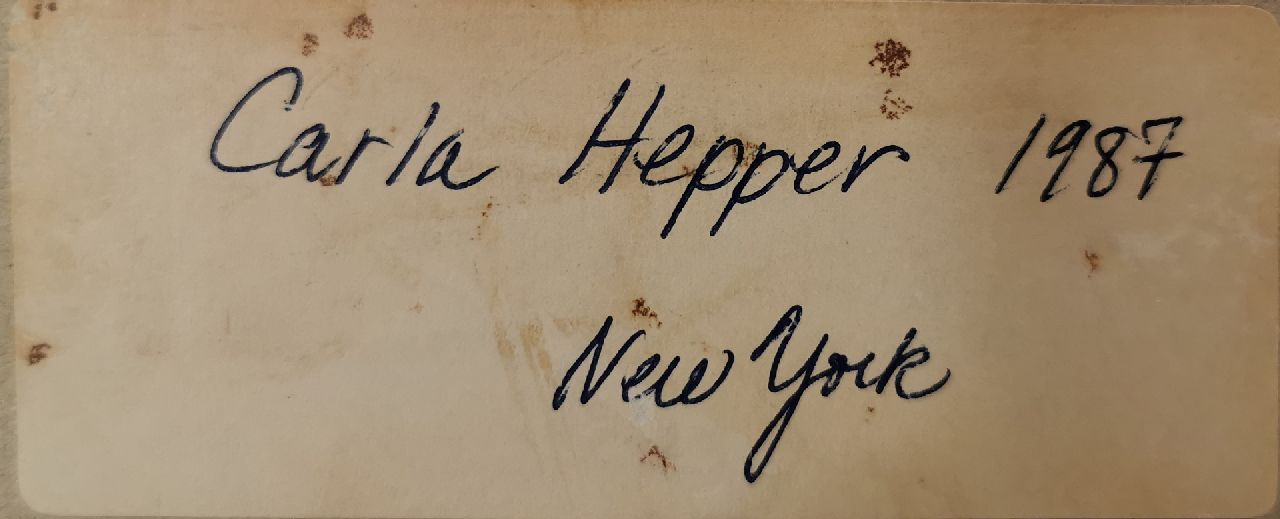 Carla Hepper 1987
New York